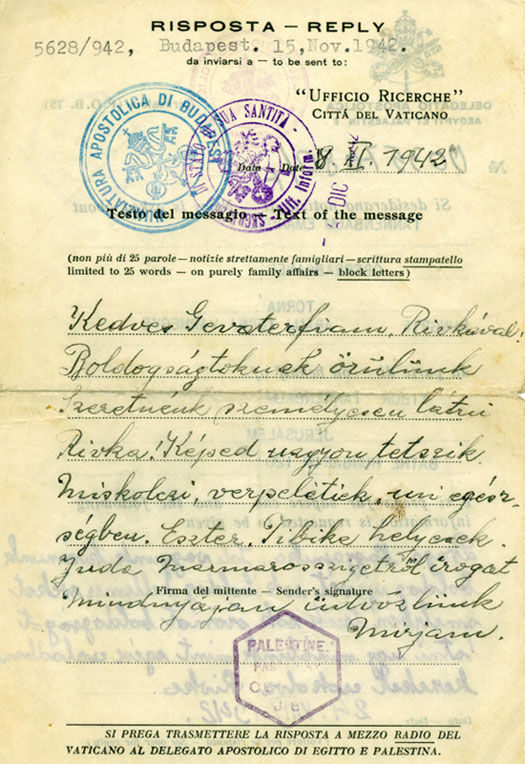 RISPOSTA — REPLY
5628/942, Budapest. 15, Nov. 1942.
da inviarsi a — to be sent to:
"UFFICIO RICERCHE"
CITTÁ DEL VATICANO
NUNZIATURA APOSTOLICA DI BUDAPEST
DI STATO DI SUA SANTITÀ -
Uff. Inform.
DIC
Data — Date 8. XI. 1942
Testo del messagio — Text of the message
(non più di 25 parole — notizie strettamente famigliari — scrittura stampatello
limited to 25 words — on purely family affairs — block letters)
Kedves Rivkával!
Boldogságtoknak örülünk
Szeretnénk személyesen látni
Rivka! Képed nagyon tetszik
Miskolczi, verpelétiek, mi egész-
ségben. Eszter, helyesek
Juda Marmarosszigetről irogat
Firma del mittente — Sender's signature
Mindnyájan üdvözlünk
PALESTINE.
SI PREGA TRASMETTERE LA RISPOSTA A MEZZO RADIO DEL
VATICANO AL DELEGATO APOSTOLICO DI EGITTO E PALESTINA.